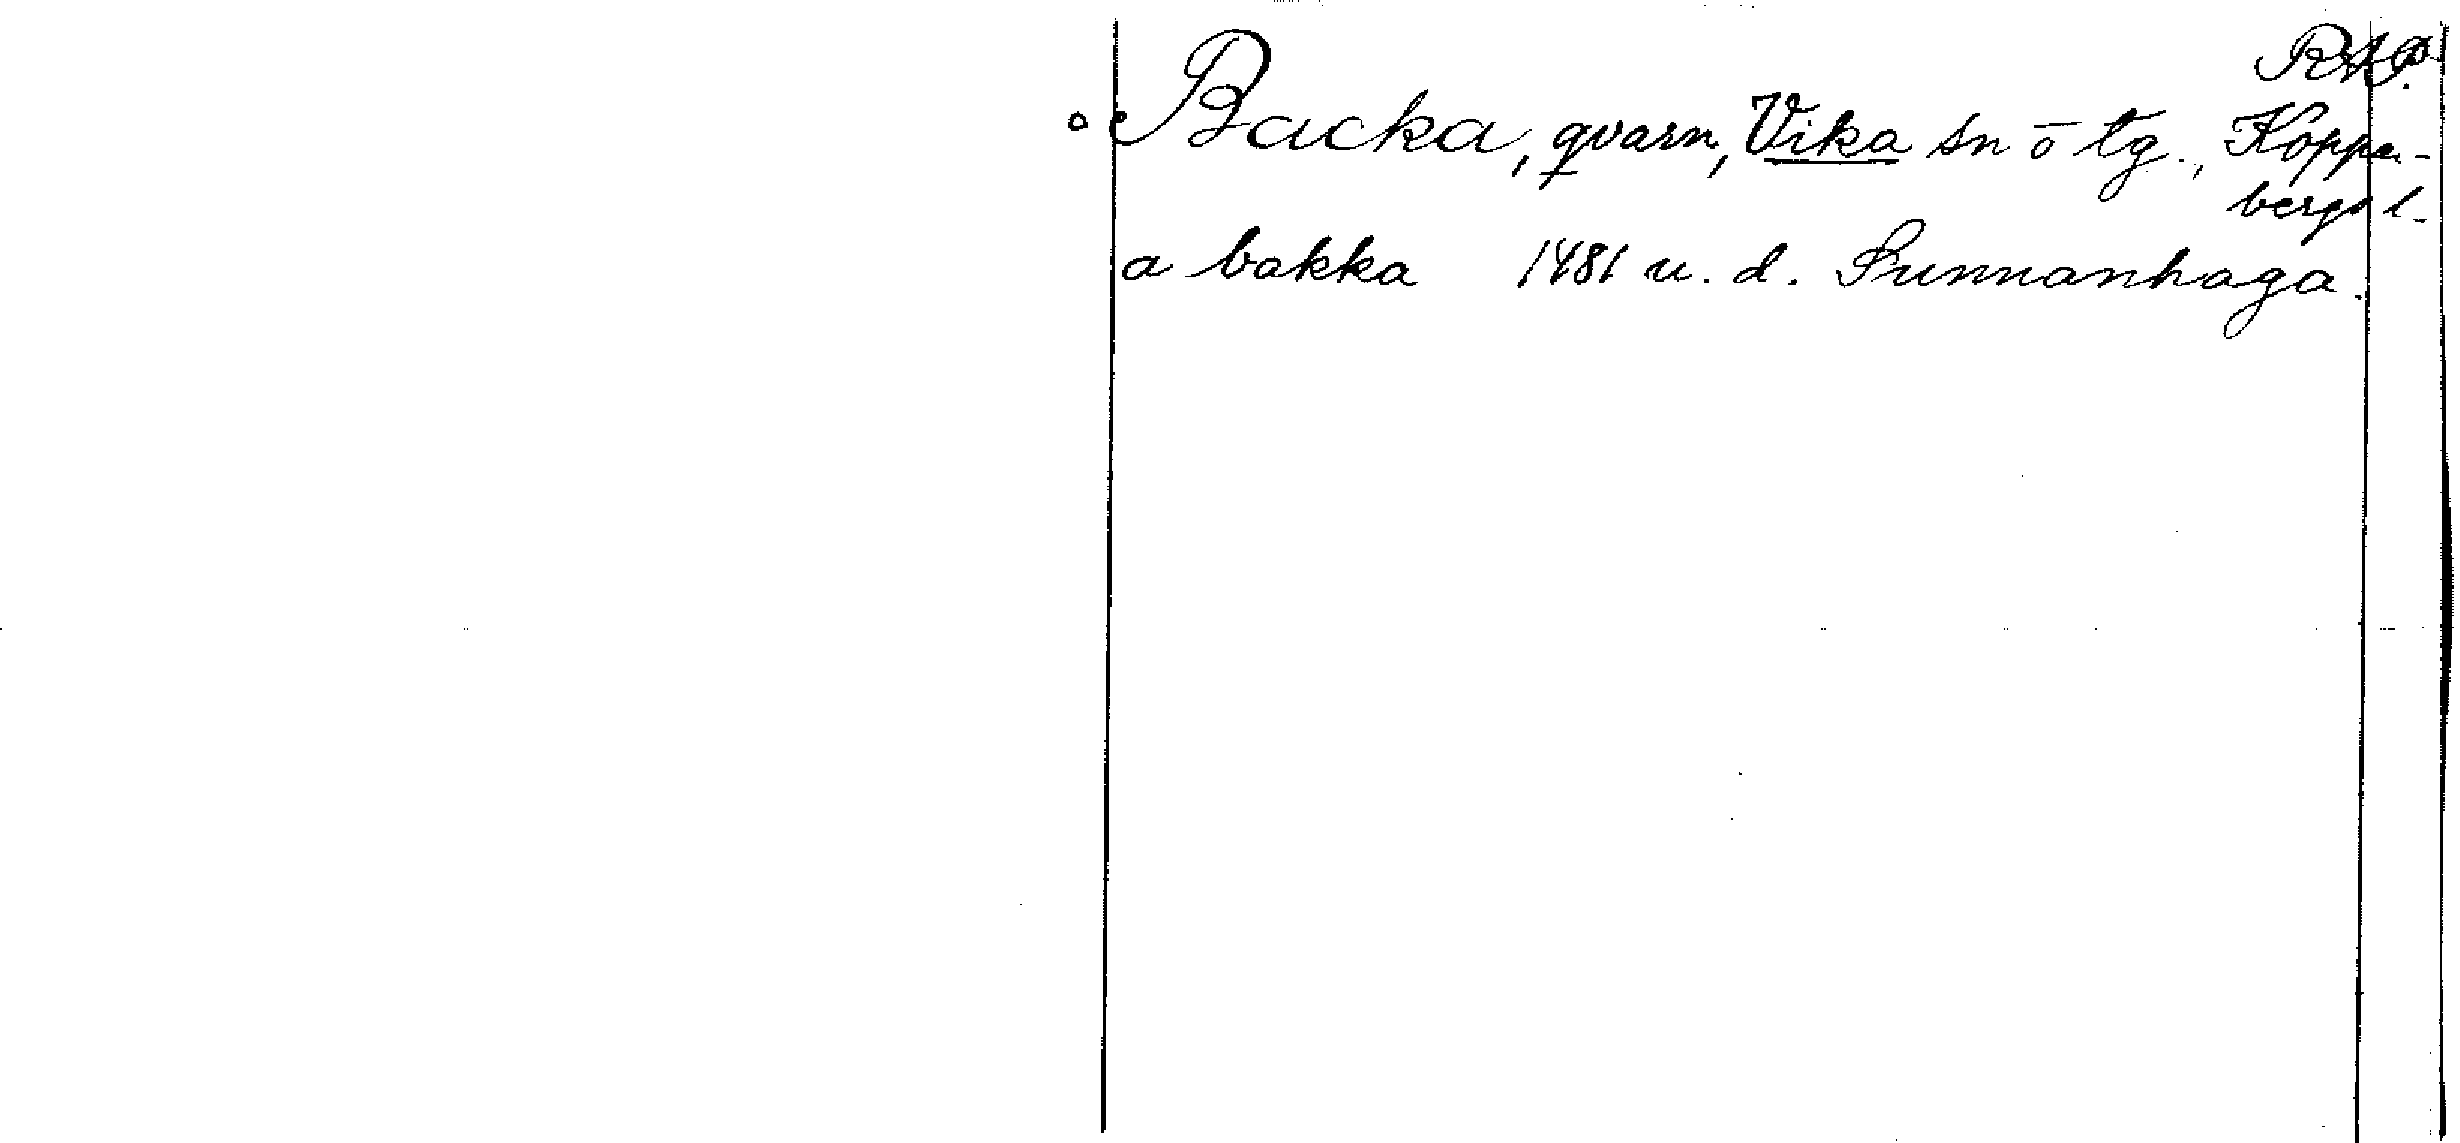 RAP.
° Backa, qvarn, Vika sn o tg., Koppar-
bergs l.
a bakka 1481 u. d. Sunnanhaga.